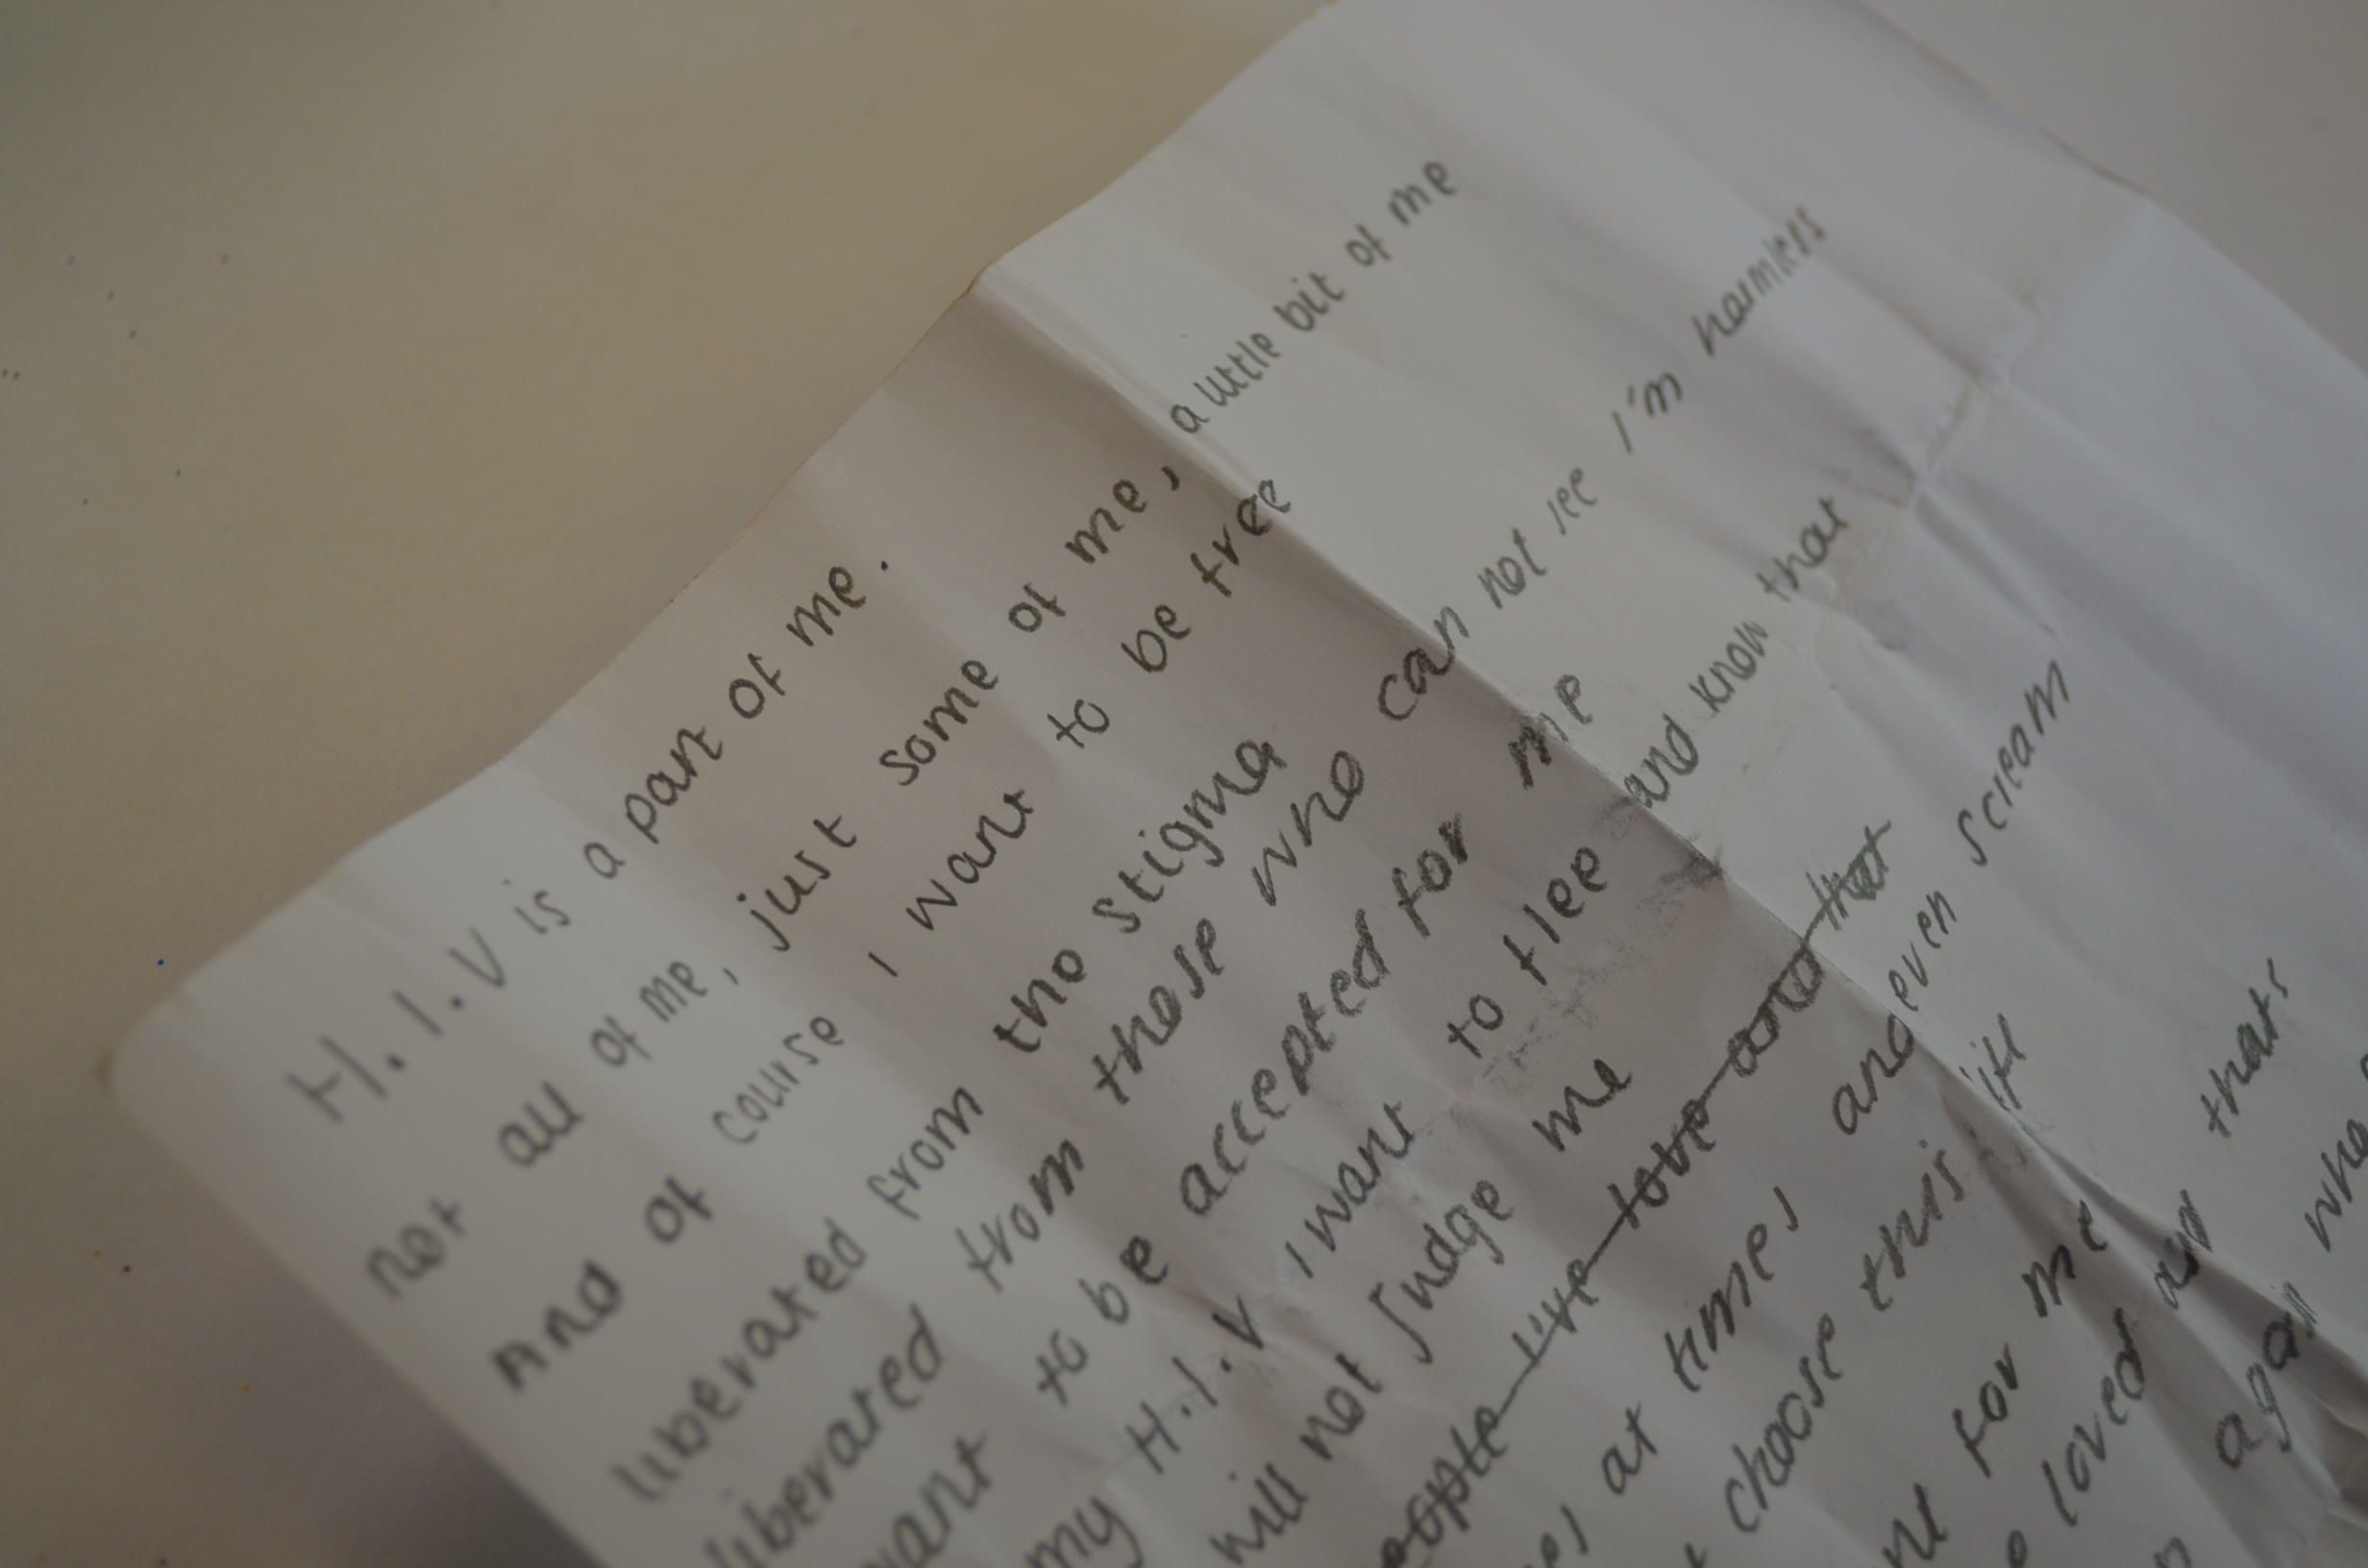 H.I.V is a part of me.
not all of me, just some of me, a little bit of me
And of course I want to be free
liberated from the stigma
liberated from those who can not see I'm harmless
want to be accepted for me
my H.I.V I want to flee and know that
will not Judge me
people live love and that
at times and even scream
choose this life
for me
loved and thats
again